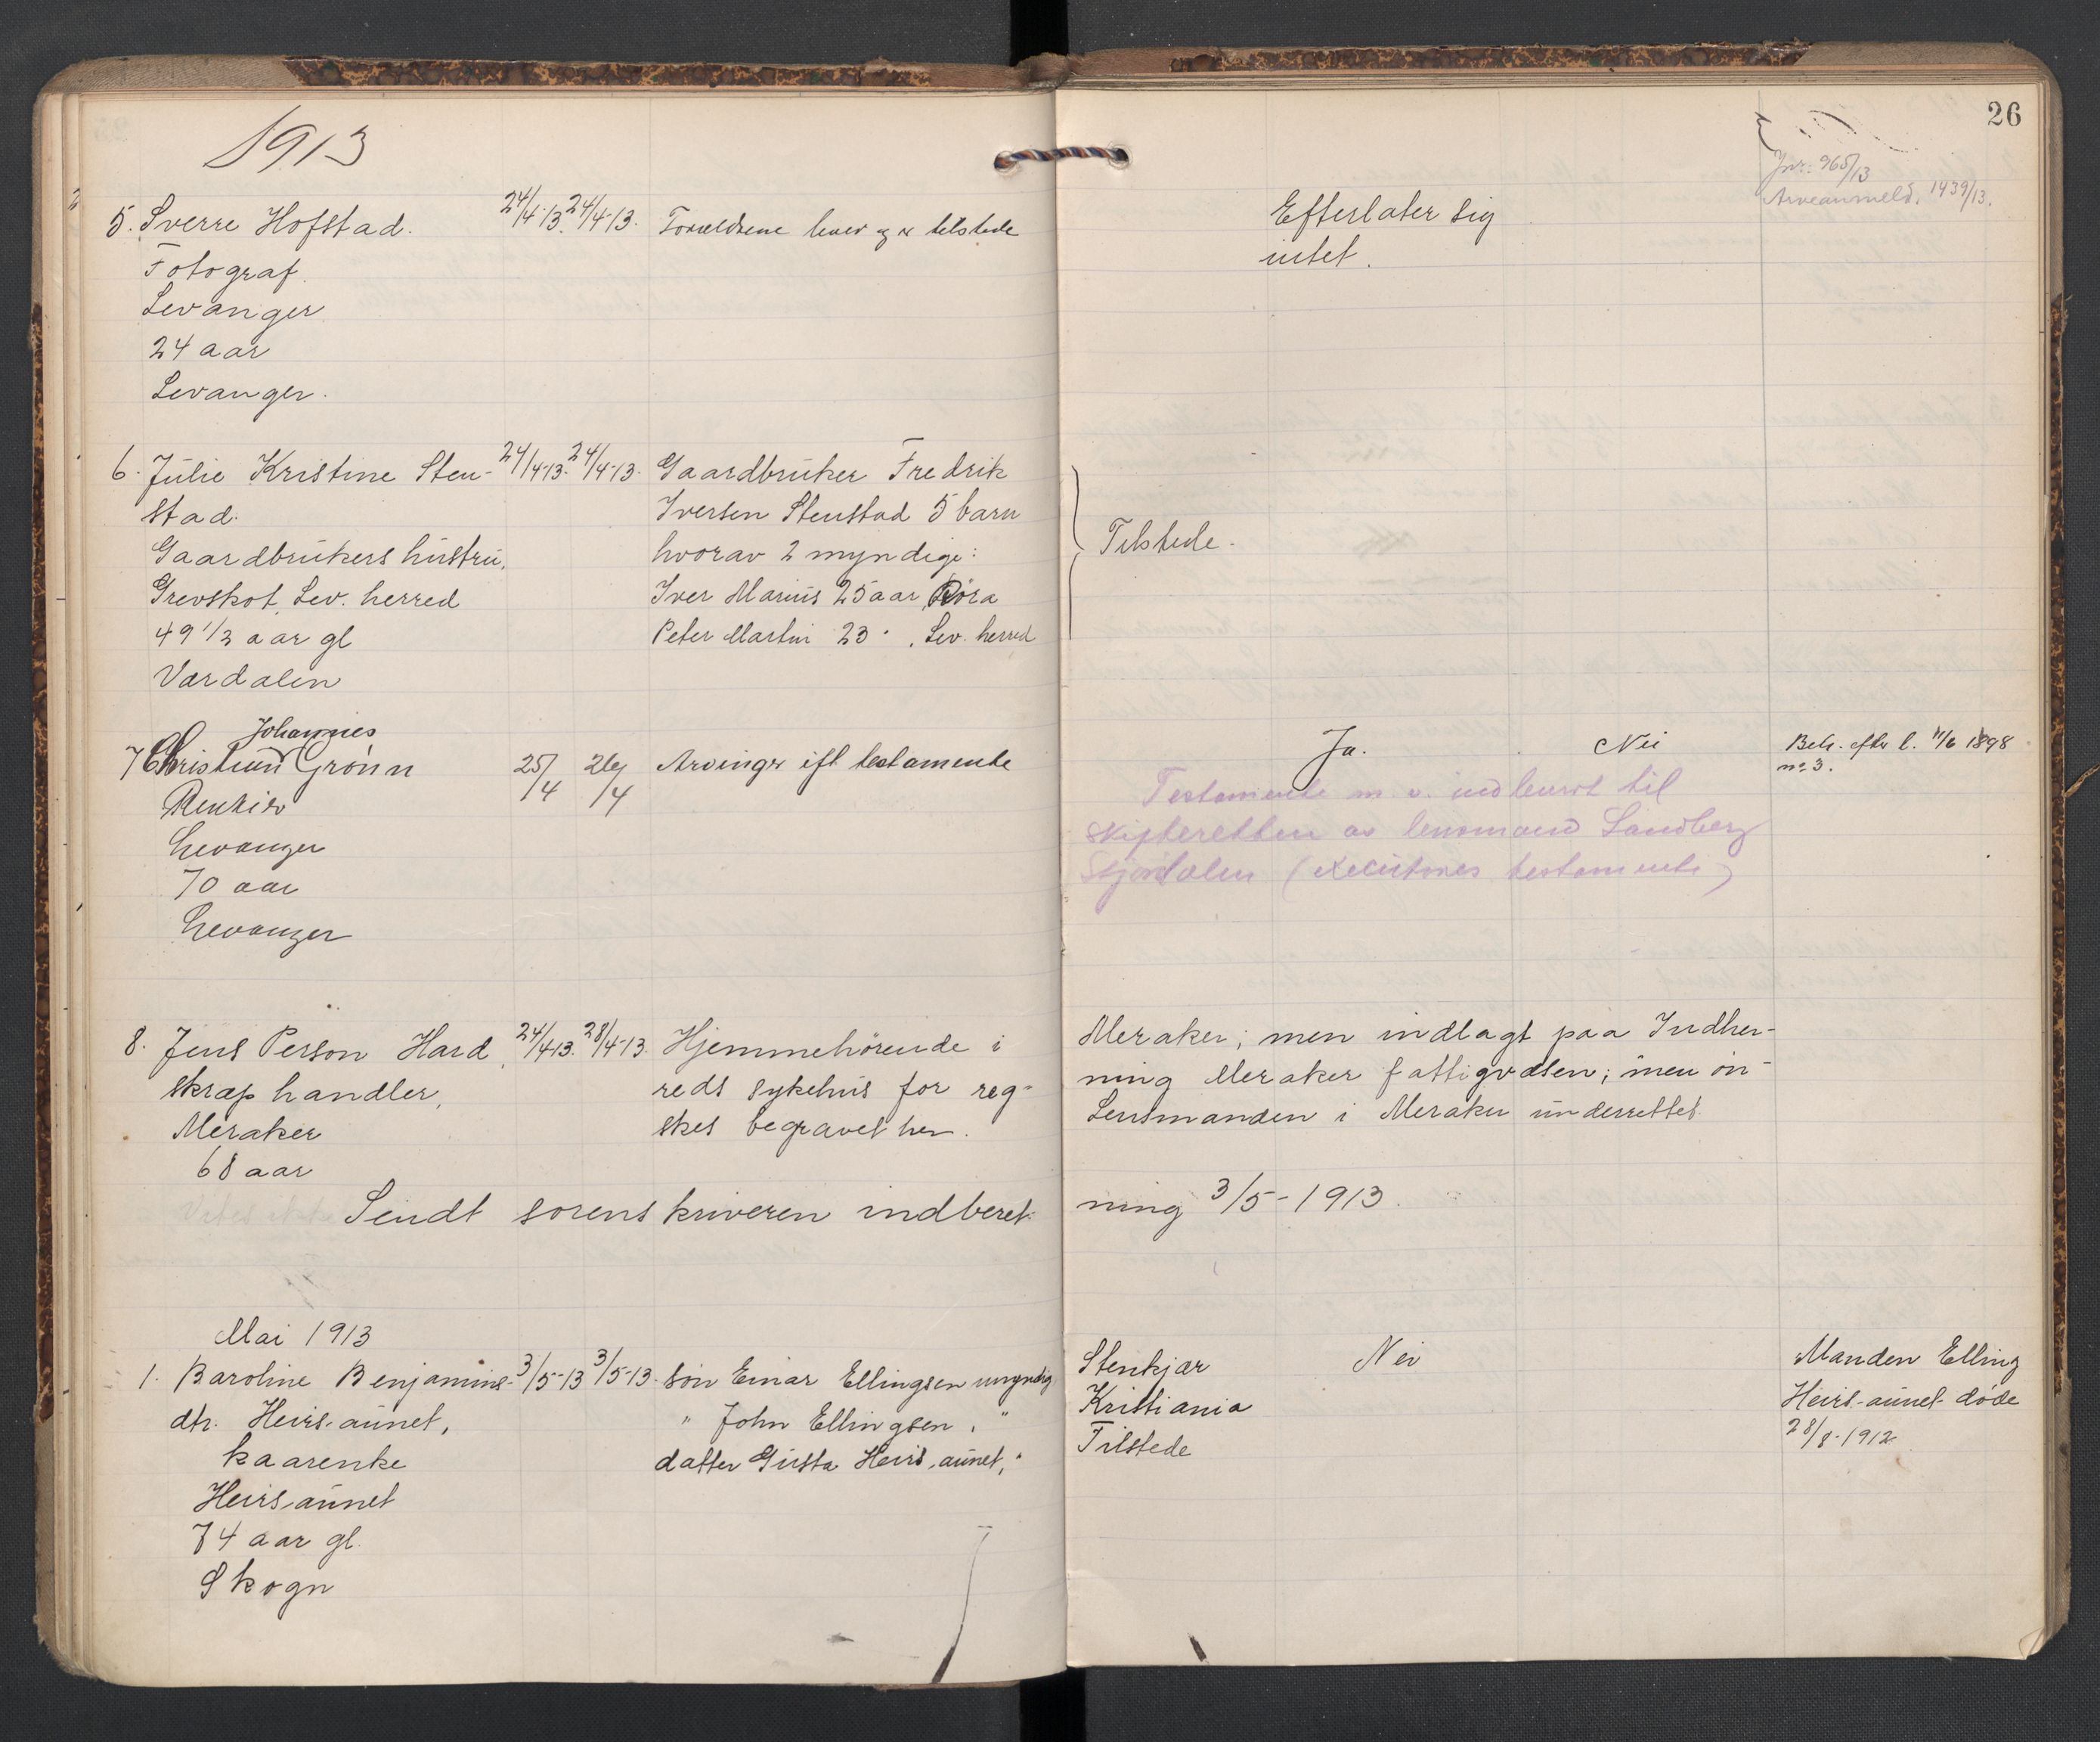 1913
26
Jnr: 965/13
Arveanmeld. 1439/13.
5. Sverre Hofstad. 24/4-13. 24/4-13. Forældrene lever og er tilstede Efterlater sig
Fotograf. intet.
Levanger
24 aar
Levanger.
6. Julie Kristine Sten- 24/4-13. 24/4-13. Gaardbruker Fredrik
stad. Iversen Stenstad 5 barn
Gaardbrukers hustru, hvorav 2 myndige: Tilstede.
Grevskot, Lev. herred Iver Marius 25 aar, Røra
49 1/2 aar gl Peter Martin 23 " , Lev. herred
Værdalen
Johannes
7 Christian Grønn 25/4 26/4 Arvinger ifl testamente Ja. Nei Beh. efter l. 11/6 1898
no 3.
Rentier Testamente m. v. indleveret til
Levanger skifteretten av lensmand Sandberg
70 aar Stjørdalen (executores testamenti)
Levanger
8. Jens Person Hard, 24/4-13. 28/4-13. Hjemmehørende i Meraker; men indlagt paa Indher-
skraphandler, reds sykehus for reg- ning Meraker fattigvæsen; men øn-
Meraker skes begravet her. Lensmanden i Meraker underrettet
68 aar
Sendt sorenskriveren indberet- ning 3/5-1913.
Mai 1913
1. Baroline Benjamins- 3/5-13 3/5-13. søn Einar Ellingsen myndig Stenkjær Nei Manden Elling
dtr. Heirs-aunet, " John Ellingsen, " Kristiania Heirs-aunet døde
kaarenke datter Gusta Heirs-aunet, " Tilstede 28/8-1912
Heirsaunet
74 aar gl.
Skogn